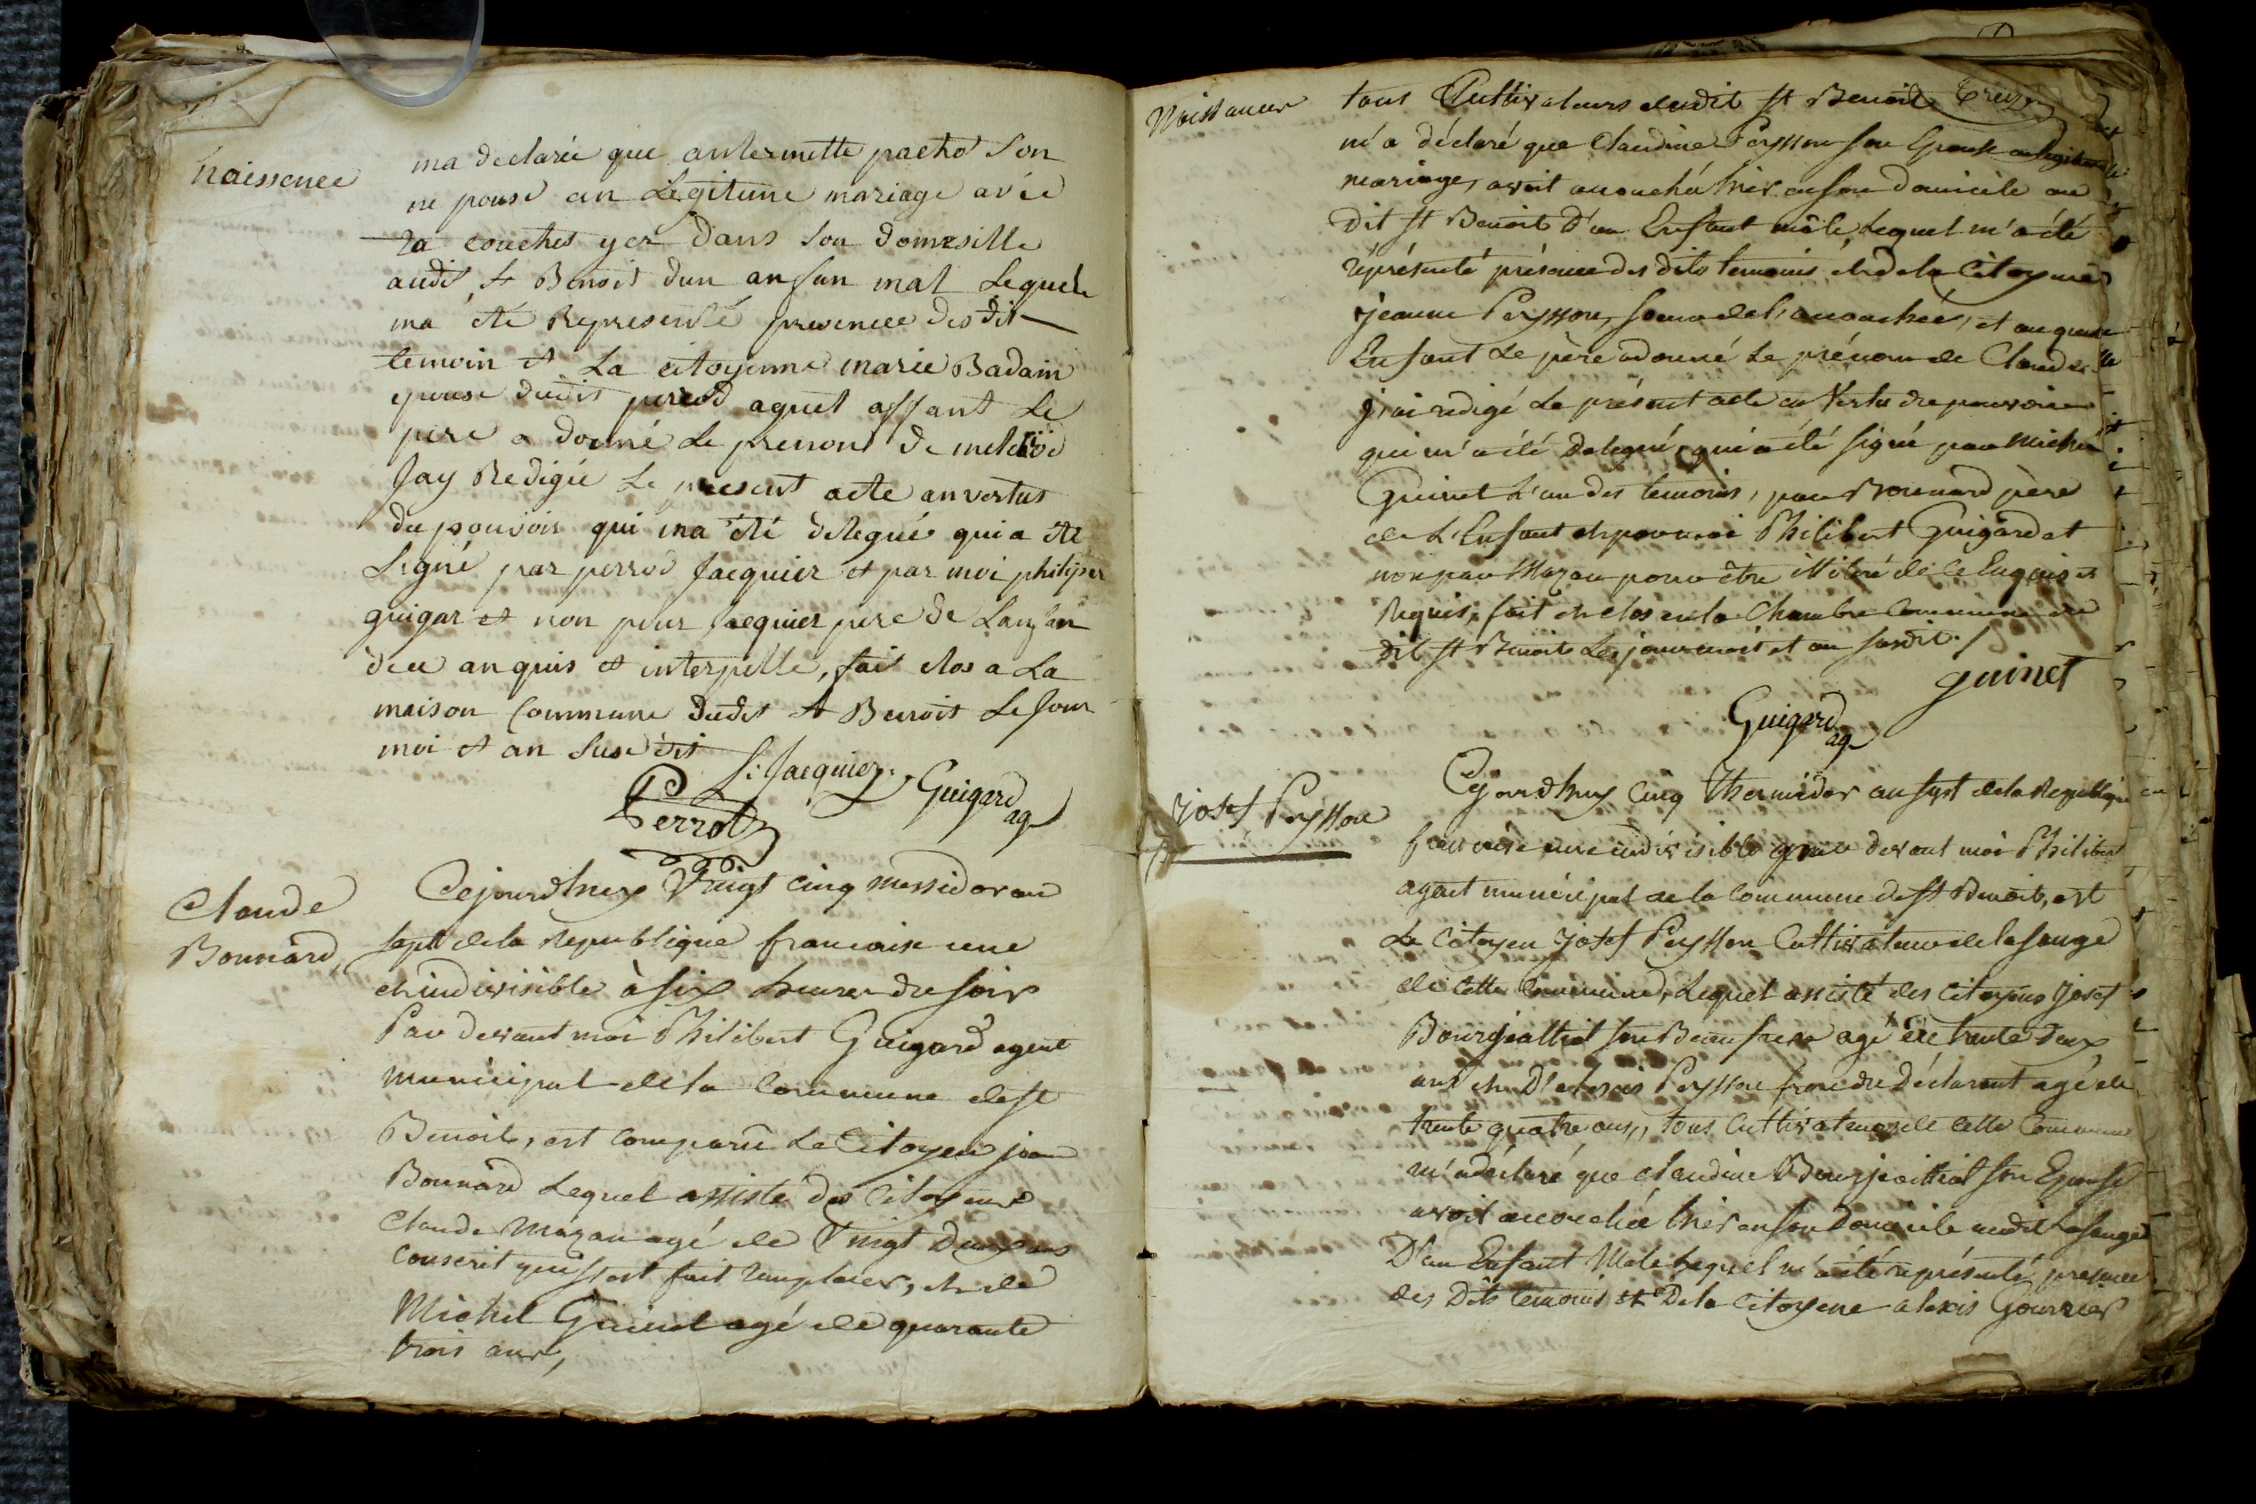 naissence
ma declarée que antermette pacho son
ne pouse an Legitime mariage avée
ra couches yer dans son domesille
audis st Benois dun anfan mal Lequele
ma été Representé presencee des dit
temoin et La citoyenne marie Badain
epouse dudis perrod aquel affant Le
pere a donné Le prenom de
Jay Redigée Le present acte anvertus
du pouvoir qui ma été delegué qui a été
signé par perrod Jacquier et par moi philiper
guigar et non pour Jacquier pere de Lanfan
dee anquis et interpelle, fait clos a La
maison Commune dudis st Benois Le jour
moi et an susedis
Jacquier Guigard ag
Perrod
Claude
Bonnard
Cejourdhuy Vingt cinq messidor an
sept de la Republique francaise une
et indivisible à six heures du soir
Par devant moi Philibert Guigard agent
municipal de la Commune de st
Benoit, est comparu Le Citoyen jean
Bonnard Lequel assisté des Citoyens
Claude Mazan agé de Vingt Deux ans
Conscrit qui s'est fait remplacer, et de
Michel Guinet agé de quarante
trois ans,
Naissances
tous Cultivateurs dudit st Benoit
m'a déclaré que Claudine Peysson son Epouse en legitime
mariage, avoit accouché hier en son domicile au
dit st Benoit D'un Enfant mâle, Lequel m'a été
représenté présence des dits temoins et de la Citoyenne
jeanne Peysson, soeur de l'accouchée, et auquel
Enfant Le père a donné Le prénom de Claude
j'ai redigé Le présent acte en Vertu du pouvoir
qui m'a été Delegué, qui a été signé par Michel
Guinet L'un des temoins, par Bonnard père
de L'Enfant et par moi Philibert Guigard et
non par Mazan pour être illitéré de ce Enquis et
Requis, fait et clos en la Chambre Commune du
dit st Benoit Les jour mois et an susdit.
guinet
Guigard ag
josef Peysson
Cejourdhuy Cinq Thermidor an sept de la Republique
francaise une indivisible devant moi Philibert
agent municipal de la Commune de st Benoit, est
Le Citoyen josef Peysson Cultivateur de la sauge
de cette Commune, Lequel assisté des Citoyens josef
son Beau frere agé de trente Deux
ans et D'alexis Peysson frere du Déclarant agé de
trente quatre ans, tous Cultivateurs de cette Commune
m'a déclaré que claudine son Epouse
avoit accouchée hier en son Domicile audit Lasauge
D'un Enfant Male Lequel m'a été représenté presence
des Dits temoins et De la Citoyene alexis Gourrier